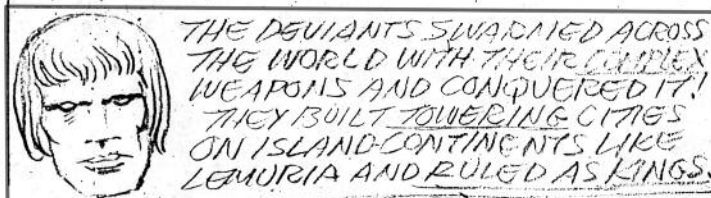 THE DEVIANTS SWARMED ACROSS
THE WORLD WITH THEIR COMPLEX
WEAPONS AND CONQUERED IT!
THEY BUILT TOWERING CITIES
ON ISLAND-CONTINENTS LIKE
LEMURIA AND RULED AS KINGS.